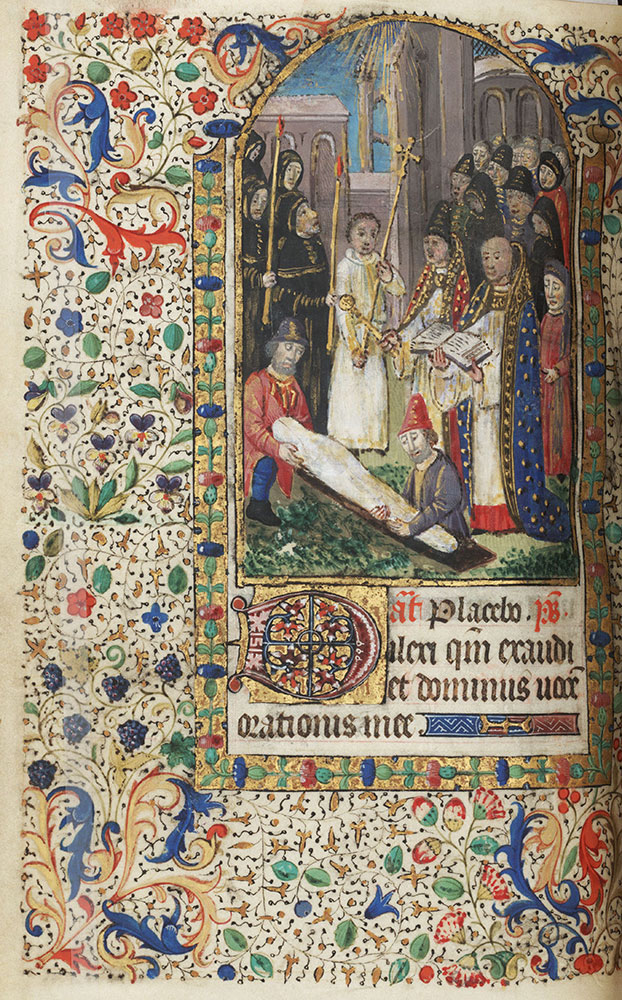 Añ Placebo. p̄s
Dilexi qm̄ exaudi
et dominus uocē
orationis mee